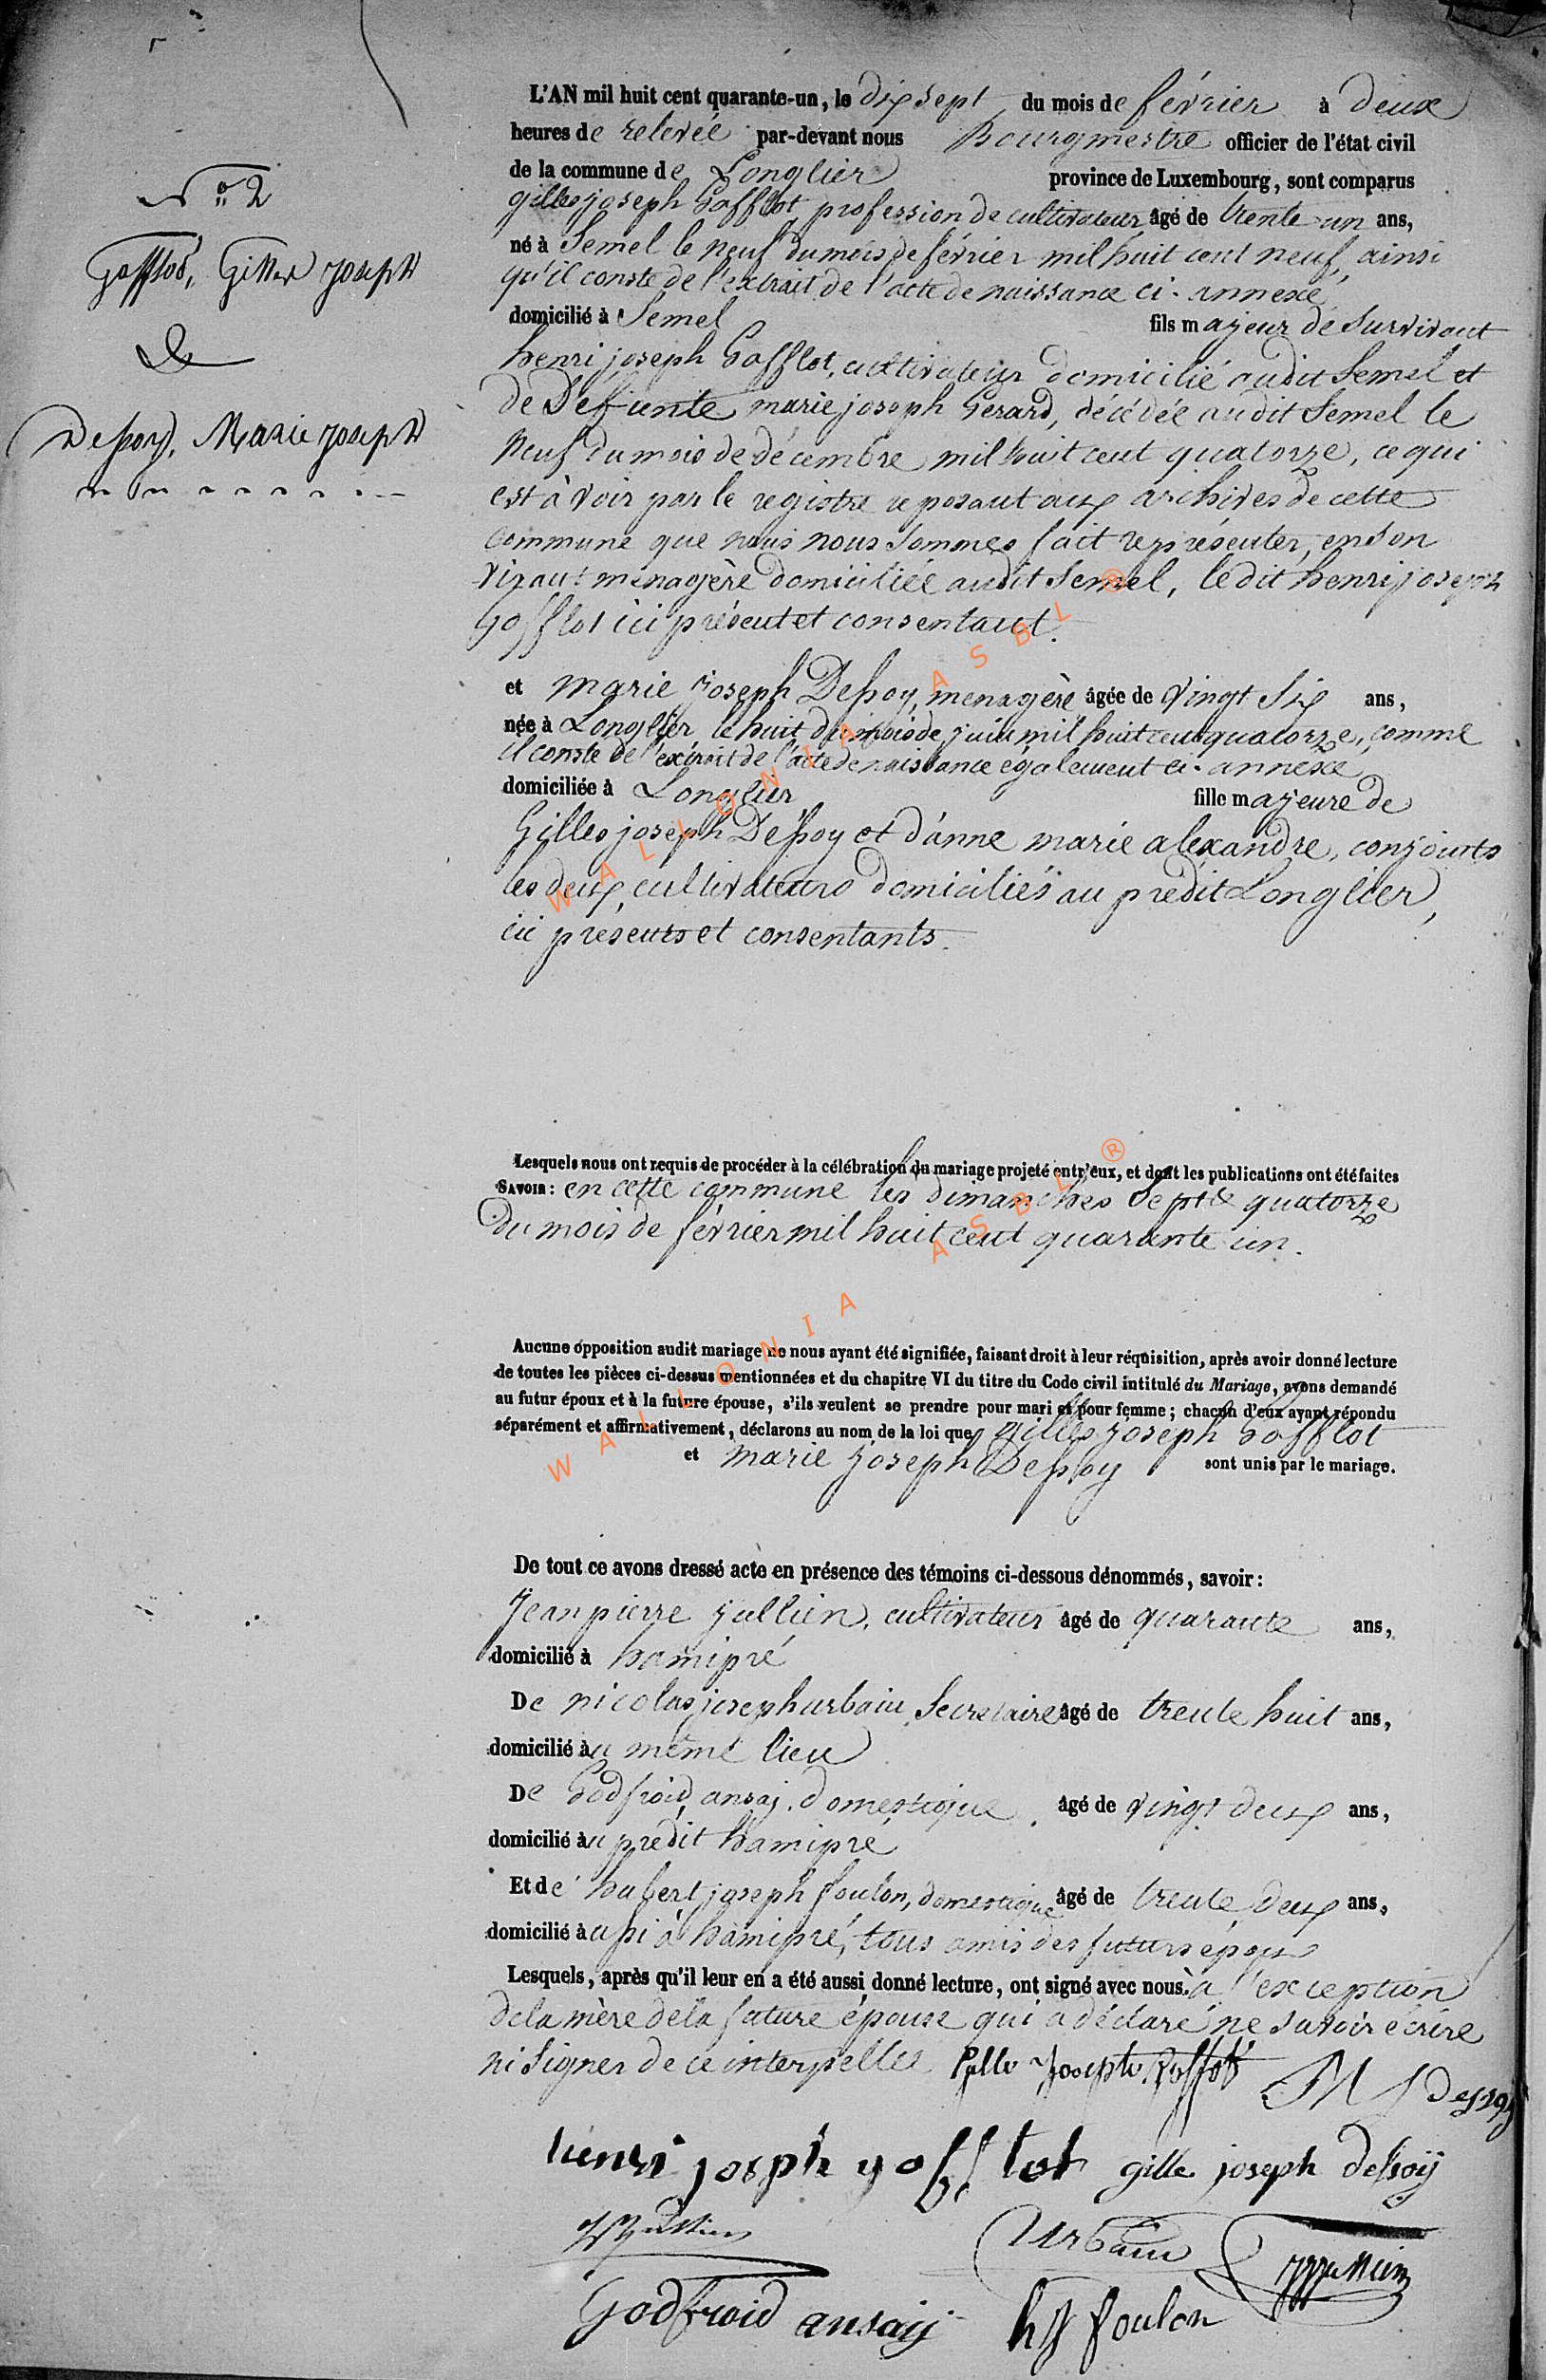 N° 2
Gofflot, Gilles joseph
&
Dessoy, Marie joseph
L'AN mil huit cent quarante-un, le dix sept du mois de février à deux
heures de relevée par-devant nous Bourgmestre officier de l'état civil
de la commune de Longlier province de Luxembourg, sont comparus
gilles joseph Gofflot profession de cultivateur âgé de trente un ans,
né à Semel le neuf du mois de février mil huit cent neuf, ainsi
qu'il conste de l'extrait de l'acte de naissance ci-annexé,
domicilié à Semel fils majeur de survivant
henri joseph Gofflot, cultivateur domicilié audit Semel et
de Défunte marie joseph Gerard, décédée audit Semel le
neuf du mois de décembre mil huit cent quatorze, ce qui
est à voir par le registre reposant aux archives de cette
commune que nous nous sommes fait représenter, en son
vivant menagère domiciliée audit Semel, le dit henri joseph
Gofflot ici présent et consentant.
et marie joseph Dessoy, menagère âgée de vingt six ans,
née à Longlier le huit du mois de juin mil huit cent quatorze, comme
il conste de l'extrait de l'acte de naissance également ci-annexé
domiciliée à Longlier fille majeure de
Gilles joseph Dessoy et d'anne marie alexandre, conjoints
les deux cultivateurs domiciliés au predit Longlier,
ici présents et consentants.
Lesquels nous ont requis de procéder à la célébration du mariage projeté entr'eux, et dont les publications ont été faites
SAVOIR : en cette commune les dimanches sept & quatorze
du mois de février mil huit cent quarante un.
Aucune opposition audit mariage ne nous ayant été signifiée, faisant droit à leur réquisition, après avoir donné lecture
de toutes les pièces ci-dessus mentionnées et du chapitre VI du titre du Code civil intitulé du Mariage, avons demandé
au futur époux et à la future épouse, s'ils veulent se prendre pour mari et pour femme ; chacun d'eux ayant répondu
séparément et affirmativement, déclarons au nom de la loi que gilles joseph Gofflot
et marie joseph Dessoy sont unis par le mariage.
De tout ce avons dressé acte en présence des témoins ci-dessous dénommés, savoir :
Jean pierre jullien, cultivateur âgé de quarante ans,
domicilié à hamipré
De nicolas joseph urbain, Secretaire âgé de trente huit ans,
domicilié au même lieu
De Godfroid ansay, domestique âgé de vingt deux ans,
domicilié au predit hamipré
Et de hubert joseph foulon, domestique âgé de trente deux ans,
domicilié aussi à hamipré, tous amis des futurs époux
Lesquels, après qu'il leur en a été aussi donné lecture, ont signé avec nous. à l'exception
de la mère de la future épouse qui a déclaré ne savoir écrire
ni signer de ce interpellée. Gille Joseph Gofflot M J Dessoy
henri joseph gofflot gille joseph dessoÿ
Urbain
Godfroid ansay hj foulon
WALLONIA ASBL ®
WALLONIA ASBL ®